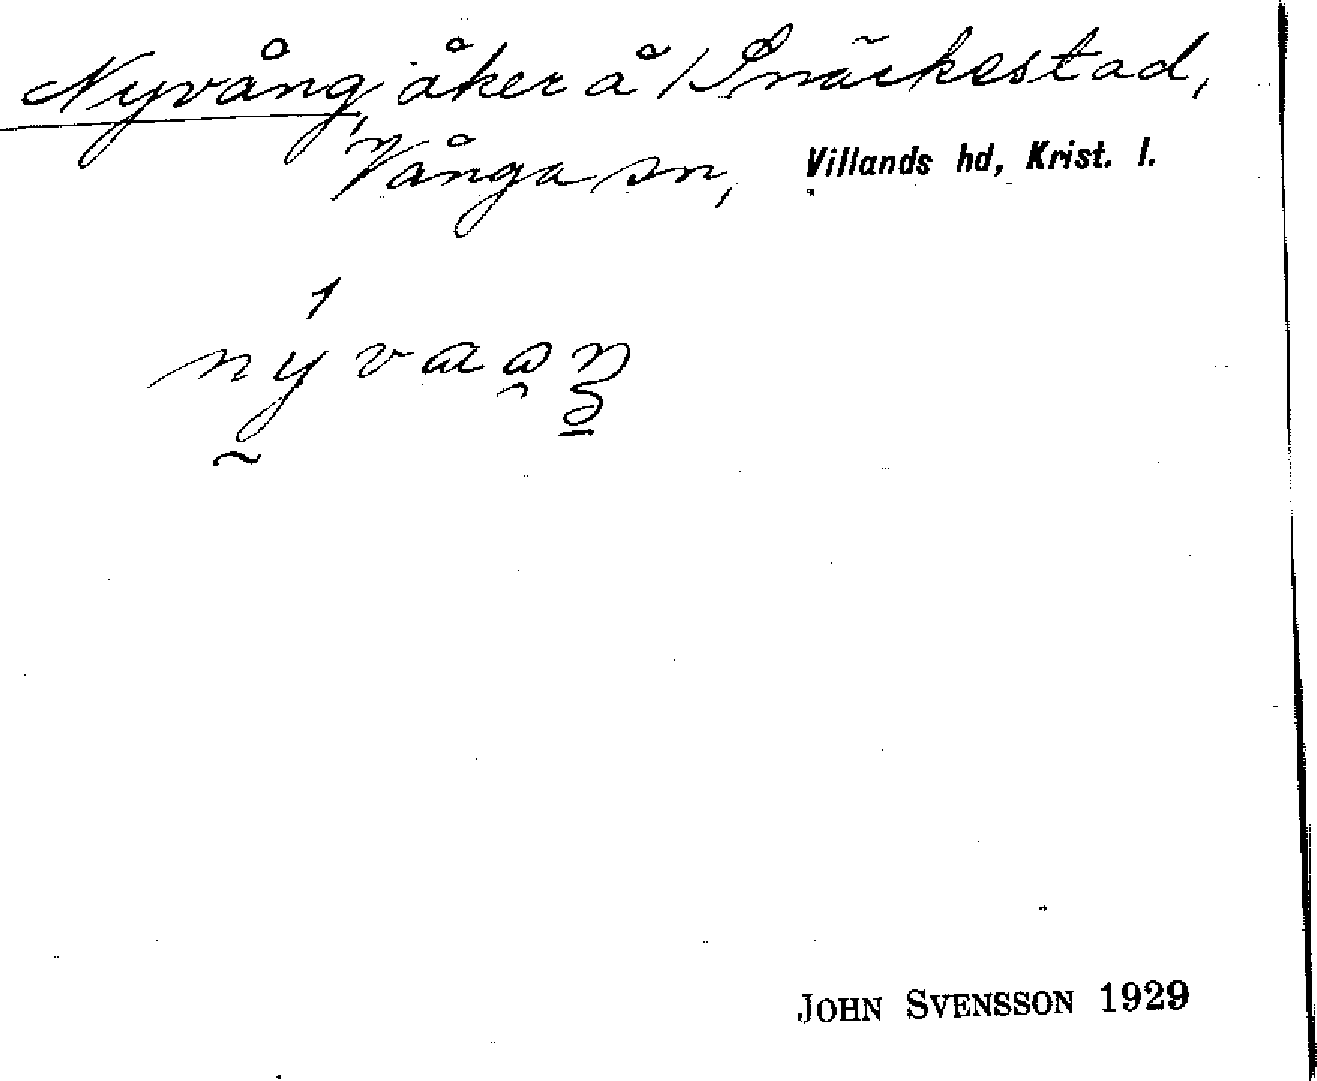 Nyvång, åker å Snäckestad,
Vånga sn, Villands hd, Krist. l.
JOHN SVENSSON 1929